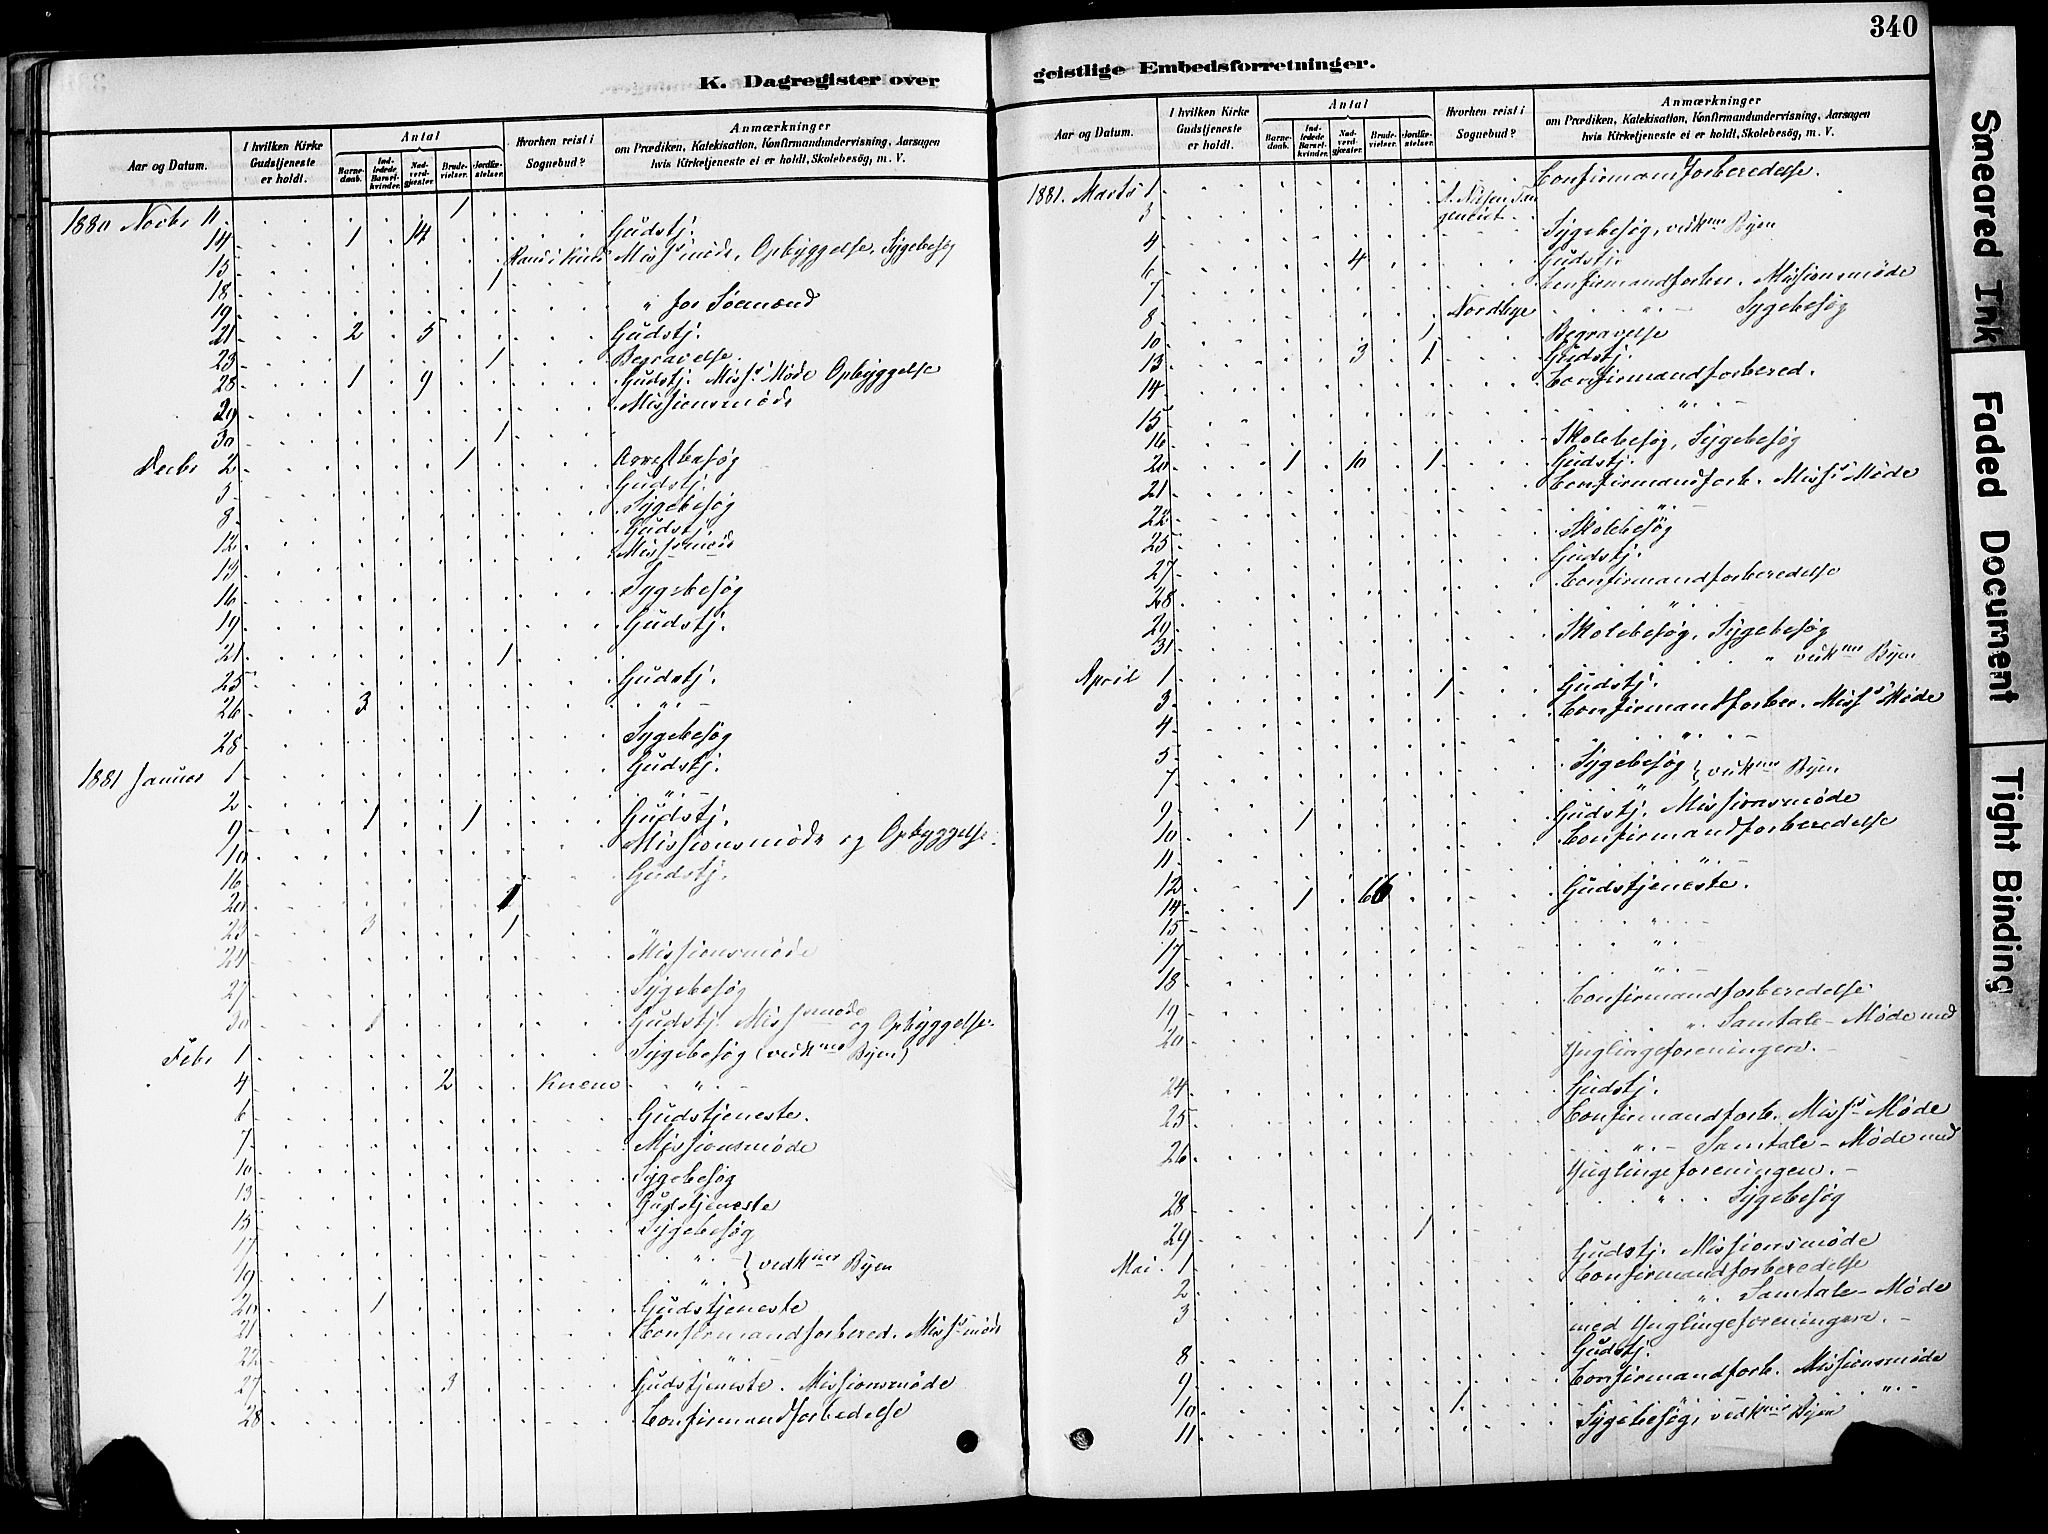 340
K. Dagregister over geistlige Embedsforretninger.
Aar og Datum.
I hvilken Kirke Gudstjeneste er holdt.
Antal
Barnedaab.
Indledede Barselkvinder.
Nadverdgjæster.
Brudevielser.
Jordfæstelser.
Hvorhen reist i Sognebud?
Anmærkninger
om Prædiken, Katekisation, Konfirmandundervisning, Aarsagen
hvis Kirketjeneste ei er holdt, Skolebesøg, m. V.
1880 Novbr 11 1
14 1 14 Gudstj.
15 Missmøde, Opbyggelse, Sygebesøg
18 1
19 " for Sømænd
21 2 5 Gudstj.
23 1 Begravelse.
28 1 9 Gudstj. Miss. Møde Opbyggelse
29 Missionsmøde
30 1
Decbr 2 1 Arrestbesøg
5 Gudstj.
8 Sygebesøg
12 Gudstj.
13 Missmøde
16 Sygebesøg
19 Gudstj.
21 1
25 Gudstj.
26 3 " —
28 Sygebesøg
1881 Januar 1 Gudstj.
2 " —
9 1 1 Gudstj.
10 Missionsmøde og Opbyggelse
16 Gudstj.
20 1
23 3 1 "
24 Missionsmøde
27 Sygebesøg
30 1 Gudstj. Missmøde og Opbyggelse
Febr 1 Sygebesøg (vedk. Byen)
4 2 " —
6 Gudstjeneste.
7 Missionsmøde
10 Sygebesøg
13 Gudstjeneste
15 Sygebesøg
17 "
19 " } vedk. Byen
20 1 Gudstjeneste
21 Confirmandforbered. Miss. møde
22 "
27 3 Gudstjeneste. Missionsmøde
28 Confirmandforbedelse
Aar og Datum.
I hvilken Kirke Gudstjeneste er holdt.
Antal
Barnedaab.
Indledede Barselkvinder.
Nadverdgjæster.
Brudevielser.
Jordfæstelser.
Hvorhen reist i Sognebud?
Anmærkninger
om Prædiken, Katekisation, Konfirmandundervisning, Aarsagen
hvis Kirketjeneste ei er holdt, Skolebesøg, m. V.
1881. Marts 1 Confirmandforberedelse.
3
4 Sygebesøg, vedk. Byen
6 4 Gudstj.
7 Confirmandforber. Missionsmøde
8 " — Sygebesøg
10 1 Begravelse
13 3 1 Gudstj.
14 Confirmandforbered.
15 " —
16 Skolebesøg, Sygebesøg
20 1 10 1 Gudstj.
21 Confirmandforb. Miss. Møde
22 " —
25 Skolebesøg
27 Gudstj.
28 Confirmandforberedelse
29 "
31 Skolebesøg, Sygebesøg
April 1 " vedk. Byen
3 1 Gudstj.
4 Confirmandforber. Miss. Møde
5 " —
7 Sygebesøg } vedk. Byen
9 "
10 1 Gudstj. Missionsmøde
11 Confirmandforberedelse
12 " —
14 1 66 Gudstjeneste.
15 "
17 "
18 " —
19 Confirmandforberedelse
20 " Samtale-Møde med
Ynglingeforeningen. —
24 Gudstj.
25 Confirmandforb. Miss. Møde
26 " — Samtale-Møde med
Ynglingeforeningen. —
28 " Sygebesøg
29 1
Mai 1 Gudstj. Missionsmøde
2 Confirmandforberedelse
3 " Samtale-Møde
med Ynglingeforeningen. —
8 Gudstj.
9 Confirmandforb. Missionsmøde
10 1 " " —
11 Sygebesøg, vedk. Byen
Smeared Ink
Faded Document
Tight Binding